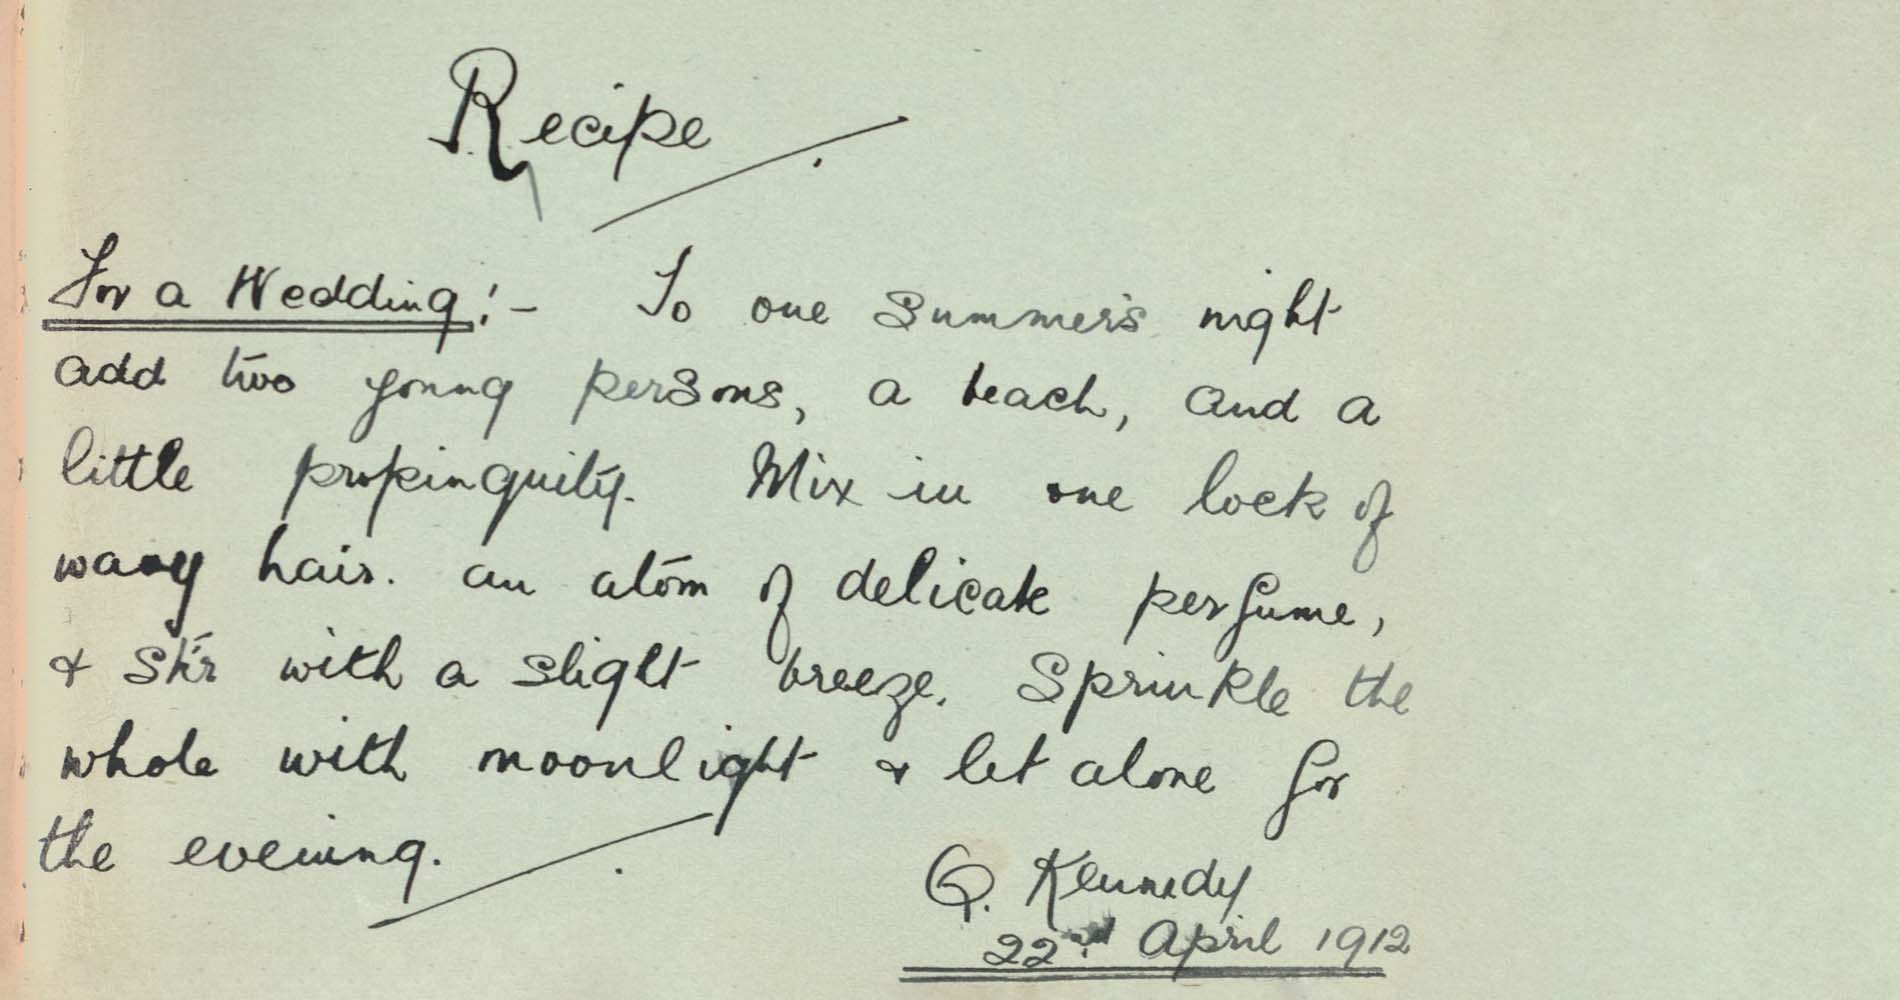 Recipe
For a Wedding:- To one Summer's night
add two young persons, a beach, and a
little propinquity. Mix in one lock of
wavy hair. an atom of delicate perfume,
& stir with a slight breeze. Sprinkle the
whole with moonlight & let alone for
the evening.
G. Kennedy
22nd April 1912